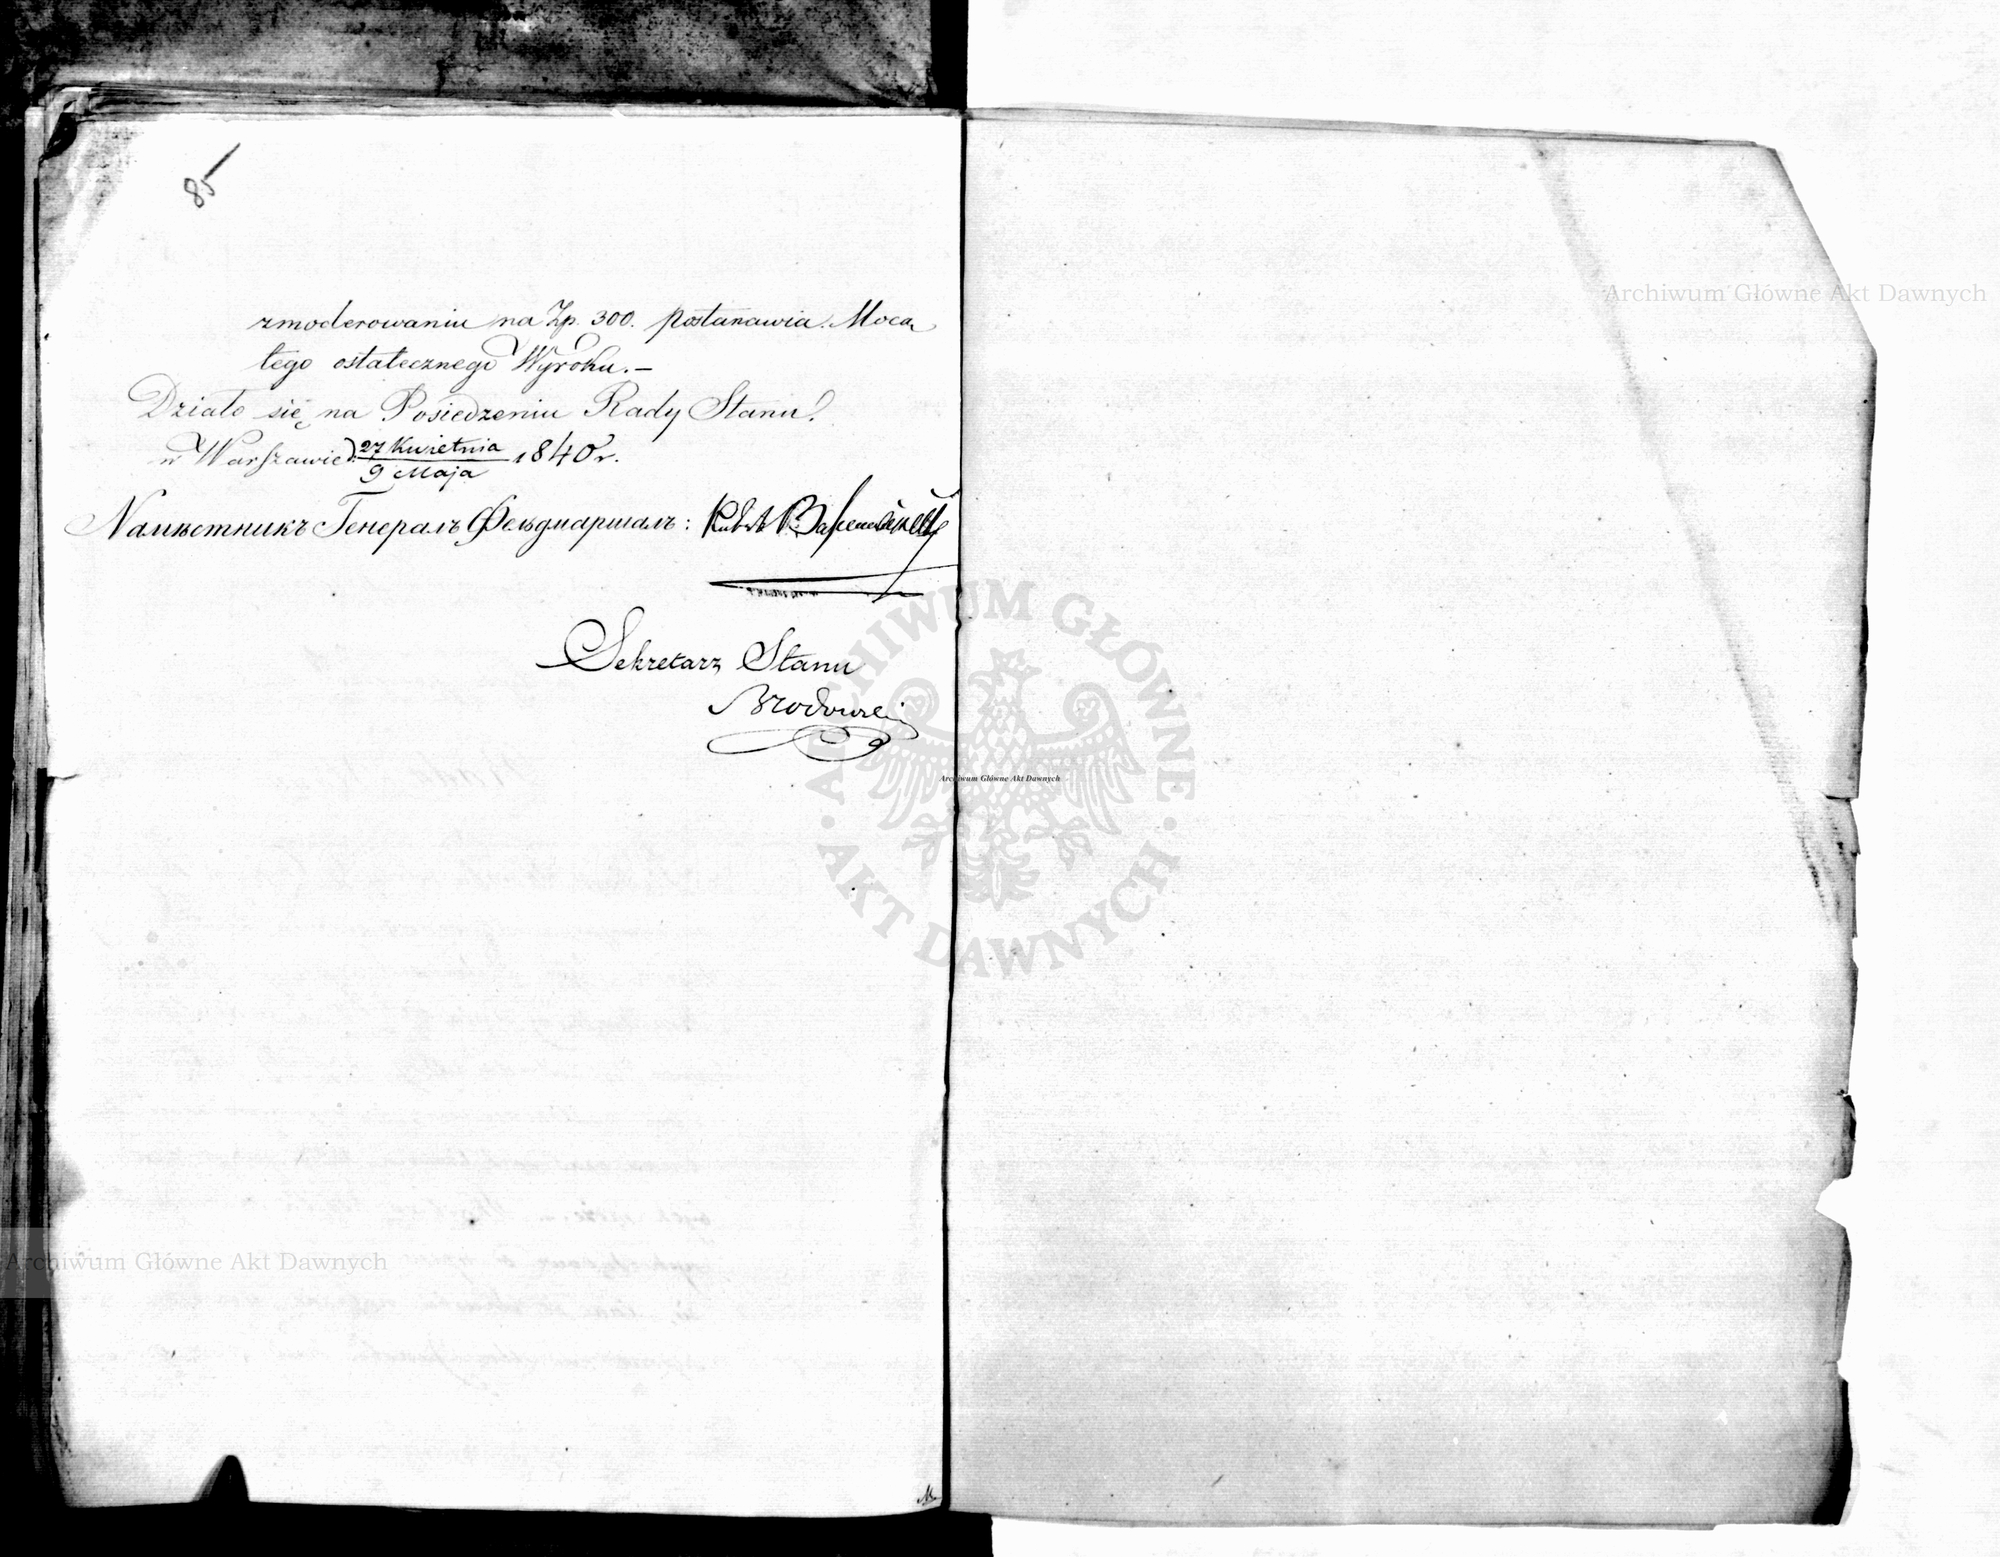 85
zmoderowaniu na Zp. 300. postanawia. Mocą
tego ostatecznego Wyroku. –
Działo się na Posiedzeniu Rady Stanu.
w Warszawie d. 27 Kwietnia / 9 Maja 1840 r.
Намѣстникъ Генералъ Фельдмаршалъ:
Sekretarz Stanu
Brodowski
Archiwum Główne Akt Dawnych
ARCHIWUM GŁÓWNE
Archiwum Główne Akt Dawnych
· AKT DAWNYCH ·
Archiwum Główne Akt Dawnych